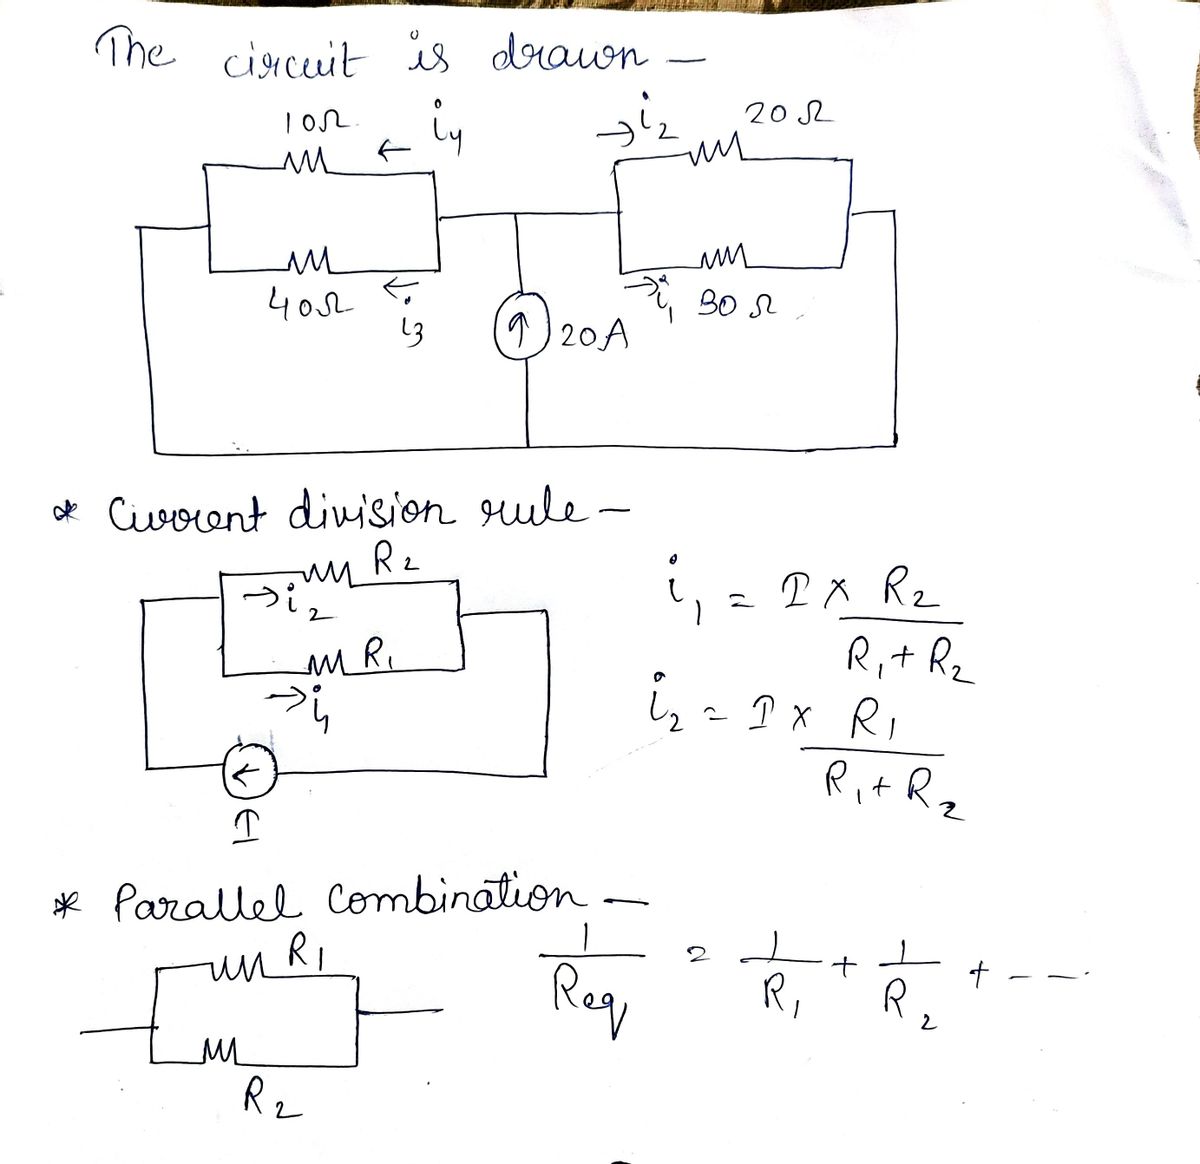 The circuit is drawn –
10Ω i4 → i2 20Ω
←
40Ω ← i3 ↑ 20A → i1 30Ω
* Current division rule –
R2
→ i2
R1
→ i1
←
I
i1 = I × R2 / R1 + R2
i2 = I × R1 / R1 + R2
* Parallel Combination –
R1
R2
1 / Req = 1 / R1 + 1 / R2 + - - -